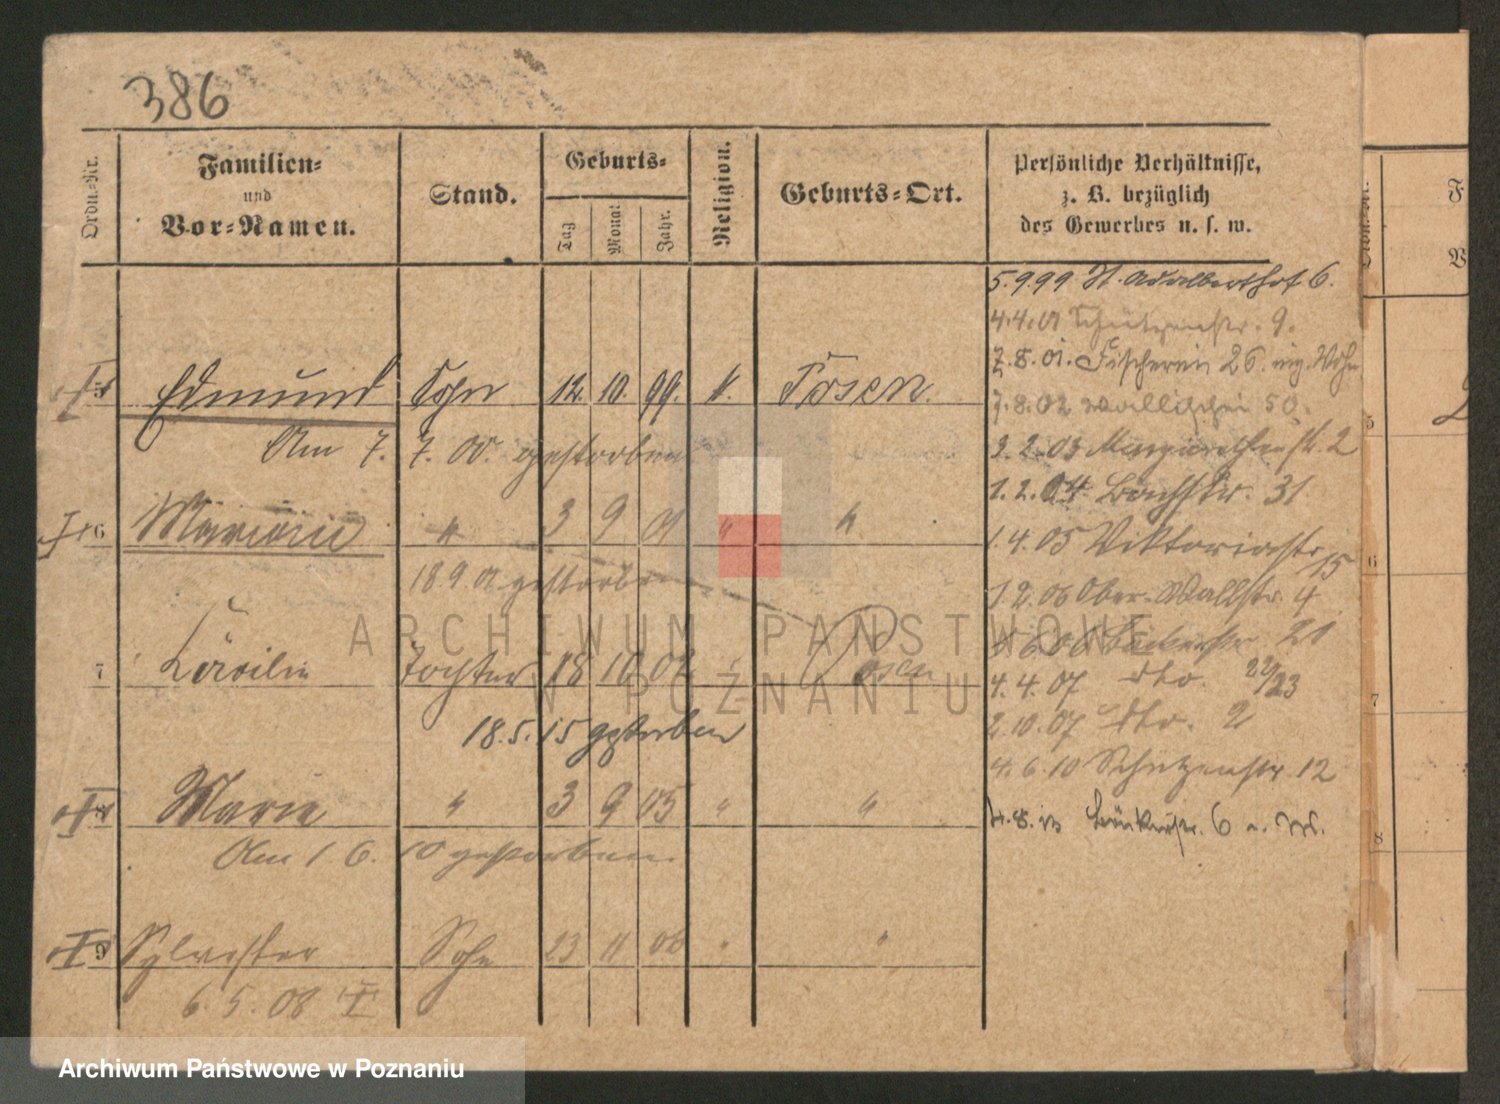 386
Ordn.-Nr.
Familien-
und
Vor-Namen.
Stand.
Geburts-
Tag
Monat
Jahr.
Religion.
Geburts-Ort.
Persönliche Verhältnisse,
z. B. bezüglich
des Gewerbes u. s. w.
5.9.99 St. Adalberthof 6.
4.4.01 Schützenstr. 9.
7.8.01. Fischerei 26.
7.8.02 Wallischei 50.
5 Edmund Sohn 12. 10. 99. k. Posen.
Am 7. 7. 00. gestorben
2.2.03 Margarethenstr. 2
1.2.04 Bachstr. 31
6 " 3 9 01 " "
1.4.05 Viktoriastr. 15
18 9. 01 gestorben
1.2.06 Ober-Wallstr. 4
7 Cäcilie Tochter 18 10 02 Posen
4.4.07 dto. 22/23
18.5.15 gestorben
2.10.07 dto. 2
4.6.10 Schützenstr. 12
8 Marie " 3 9 05 " "
6
Am 1 6. 10 gestorben.
9 Sylvester Sohn 23 11 06 " "
6. 5. 08
ARCHIWUM PAŃSTWOWE
W POZNANIU
Archiwum Państwowe w Poznaniu
F
V
5
6
7
8